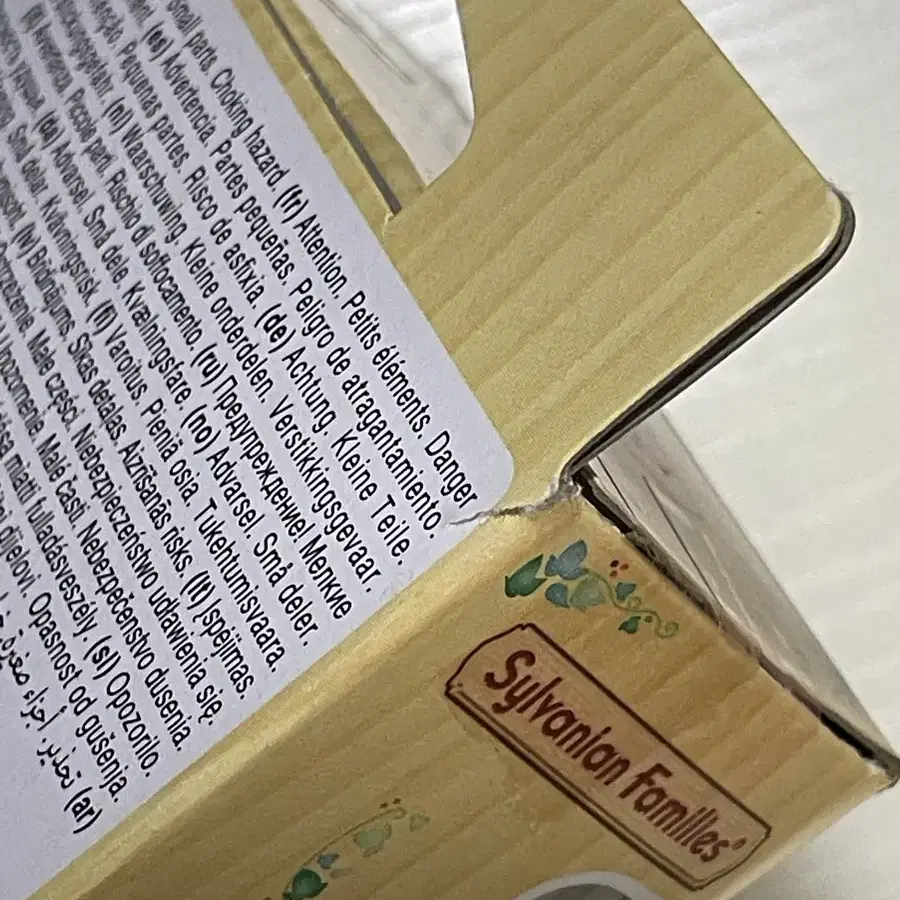 small parts. Choking hazard. (fr) Attention. Petits éléments. Danger
(es) Advertencia. Partes pequeñas. Peligro de atragantamiento.
Pequenas partes. Risco de asfixia. (de) Achtung. Kleine Teile.
(nl) Waarschuwing. Kleine onderdelen. Verstikkingsgevaar.
Piccole parti. Rischio di soffocamento. (ru) Предупреждение! Мелкие
Advarsel. Små dele. Kvælningsfare. (no) Advarsel. Små deler.
Små delar. Kvävningsrisk. (fi) Varoitus. Pieniä osia. Tukehtumisvaara.
(lv) Brīdinājums. Sīkas detaļas. Aizrīšanās risks. (lt) Įspėjimas.
Małe części. Niebezpieczeństwo udławienia się.
Upozornenie. Malé časti. Nebezpečenstvo dusenia.
miatti fulladásveszély. (sl) Opozorilo.
djelovi. Opasnost od gušenja.
(ar) تحذير. أجزاء صغيرة
Sylvanian Families®